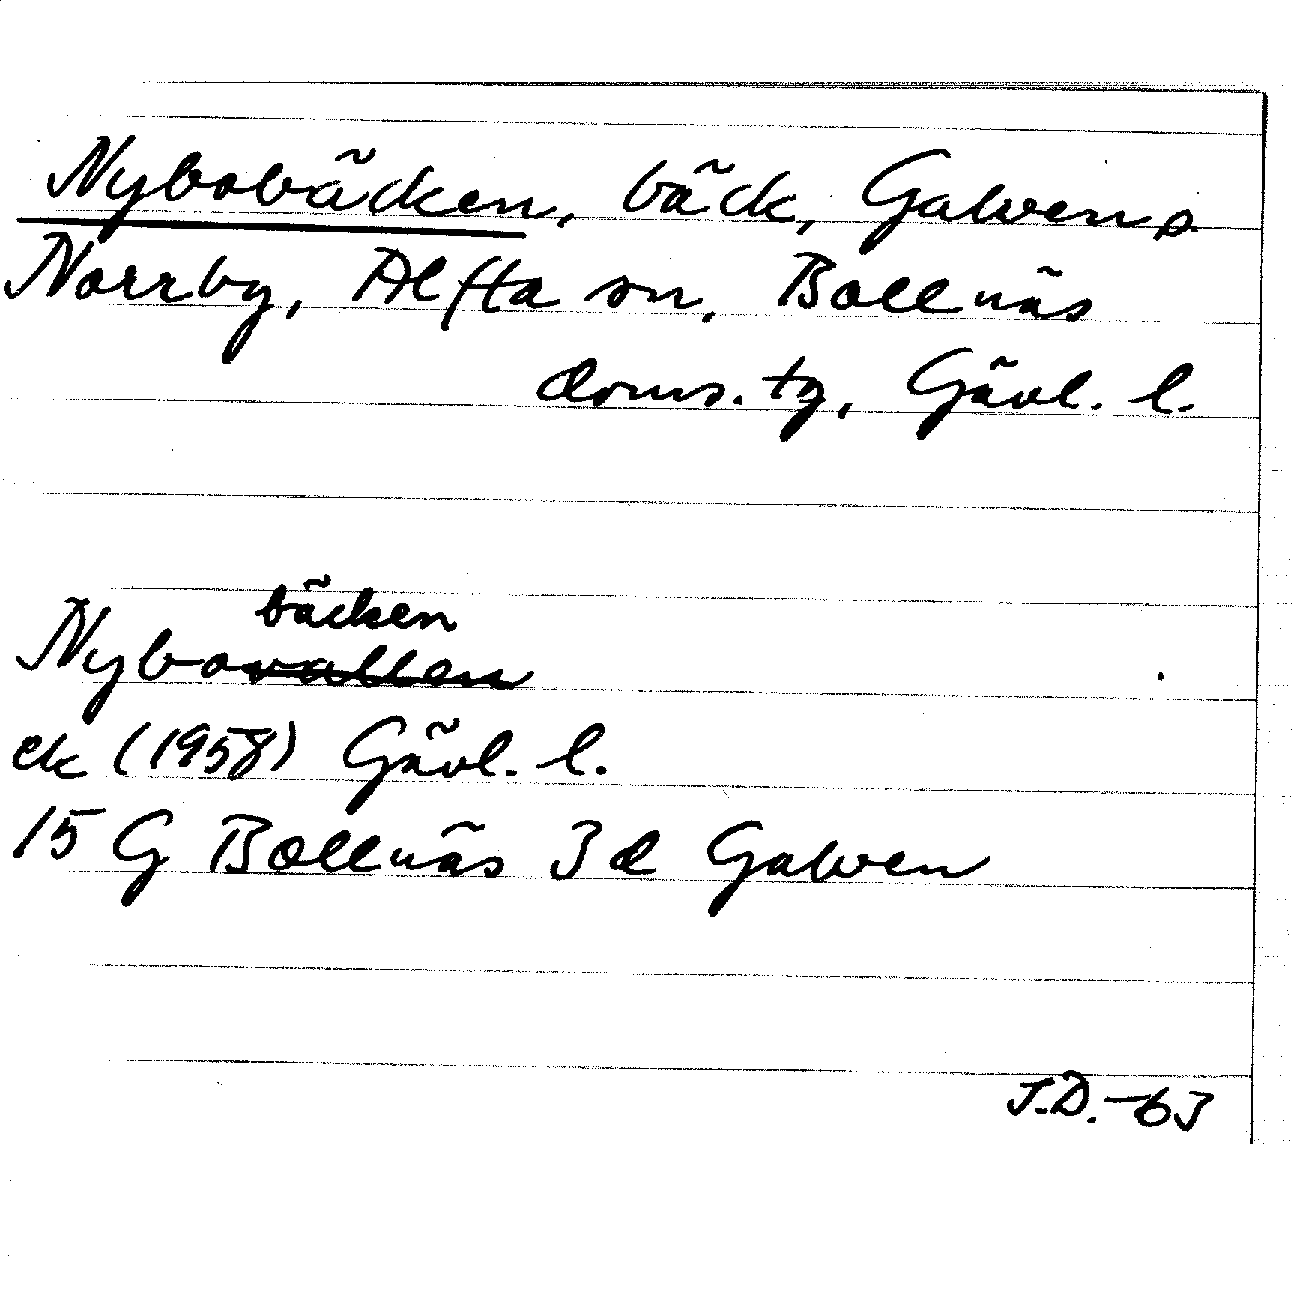 Nybobäcken, bäck, Galvens
Norrby, Alfta sn, Bollnäs
doms. tg, Gävl. l.
bäcken
Nybovallen
ek (1958) Gävl. l.
15 G Bollnäs 3d Galven
J.D.-63